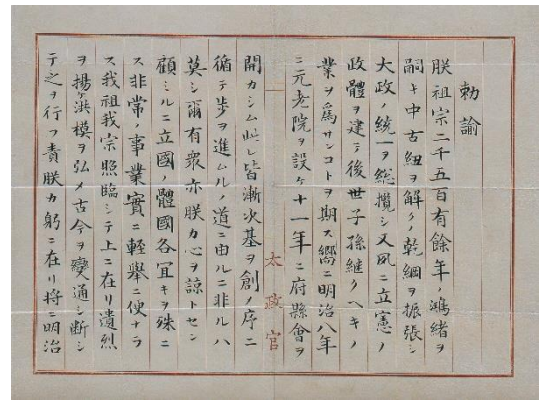 勅諭
朕祖宗二千五百有餘年ノ鴻緒ヲ
嗣キ中古紐ヲ解クノ乾綱ヲ振張シ
大政ノ統一ヲ総攬シ又夙ニ立憲ノ
政體ヲ建テ後世子孫継クヘキノ
業ヲ為サンコトヲ期ス嚮ニ明治八年
ニ元老院ヲ設ケ十一年ニ府縣會ヲ
開カシム此レ皆漸次基ヲ創メ序ニ
循テ歩ヲ進ムルノ道ニ由ルニ非ルハ
莫シ爾有衆亦朕カ心ヲ諒トセン
顧ミルニ立國ノ體國各宜キヲ殊ニ
ス非常ノ事業實ニ輕舉ニ便ナラ
ス我祖我宗照臨シテ上ニ在リ遺烈
ヲ揚ケ洪模ヲ弘メ古今ヲ變通シ断シ
テ之ヲ行フ責朕カ躬ニ在リ将ニ明治
太政官